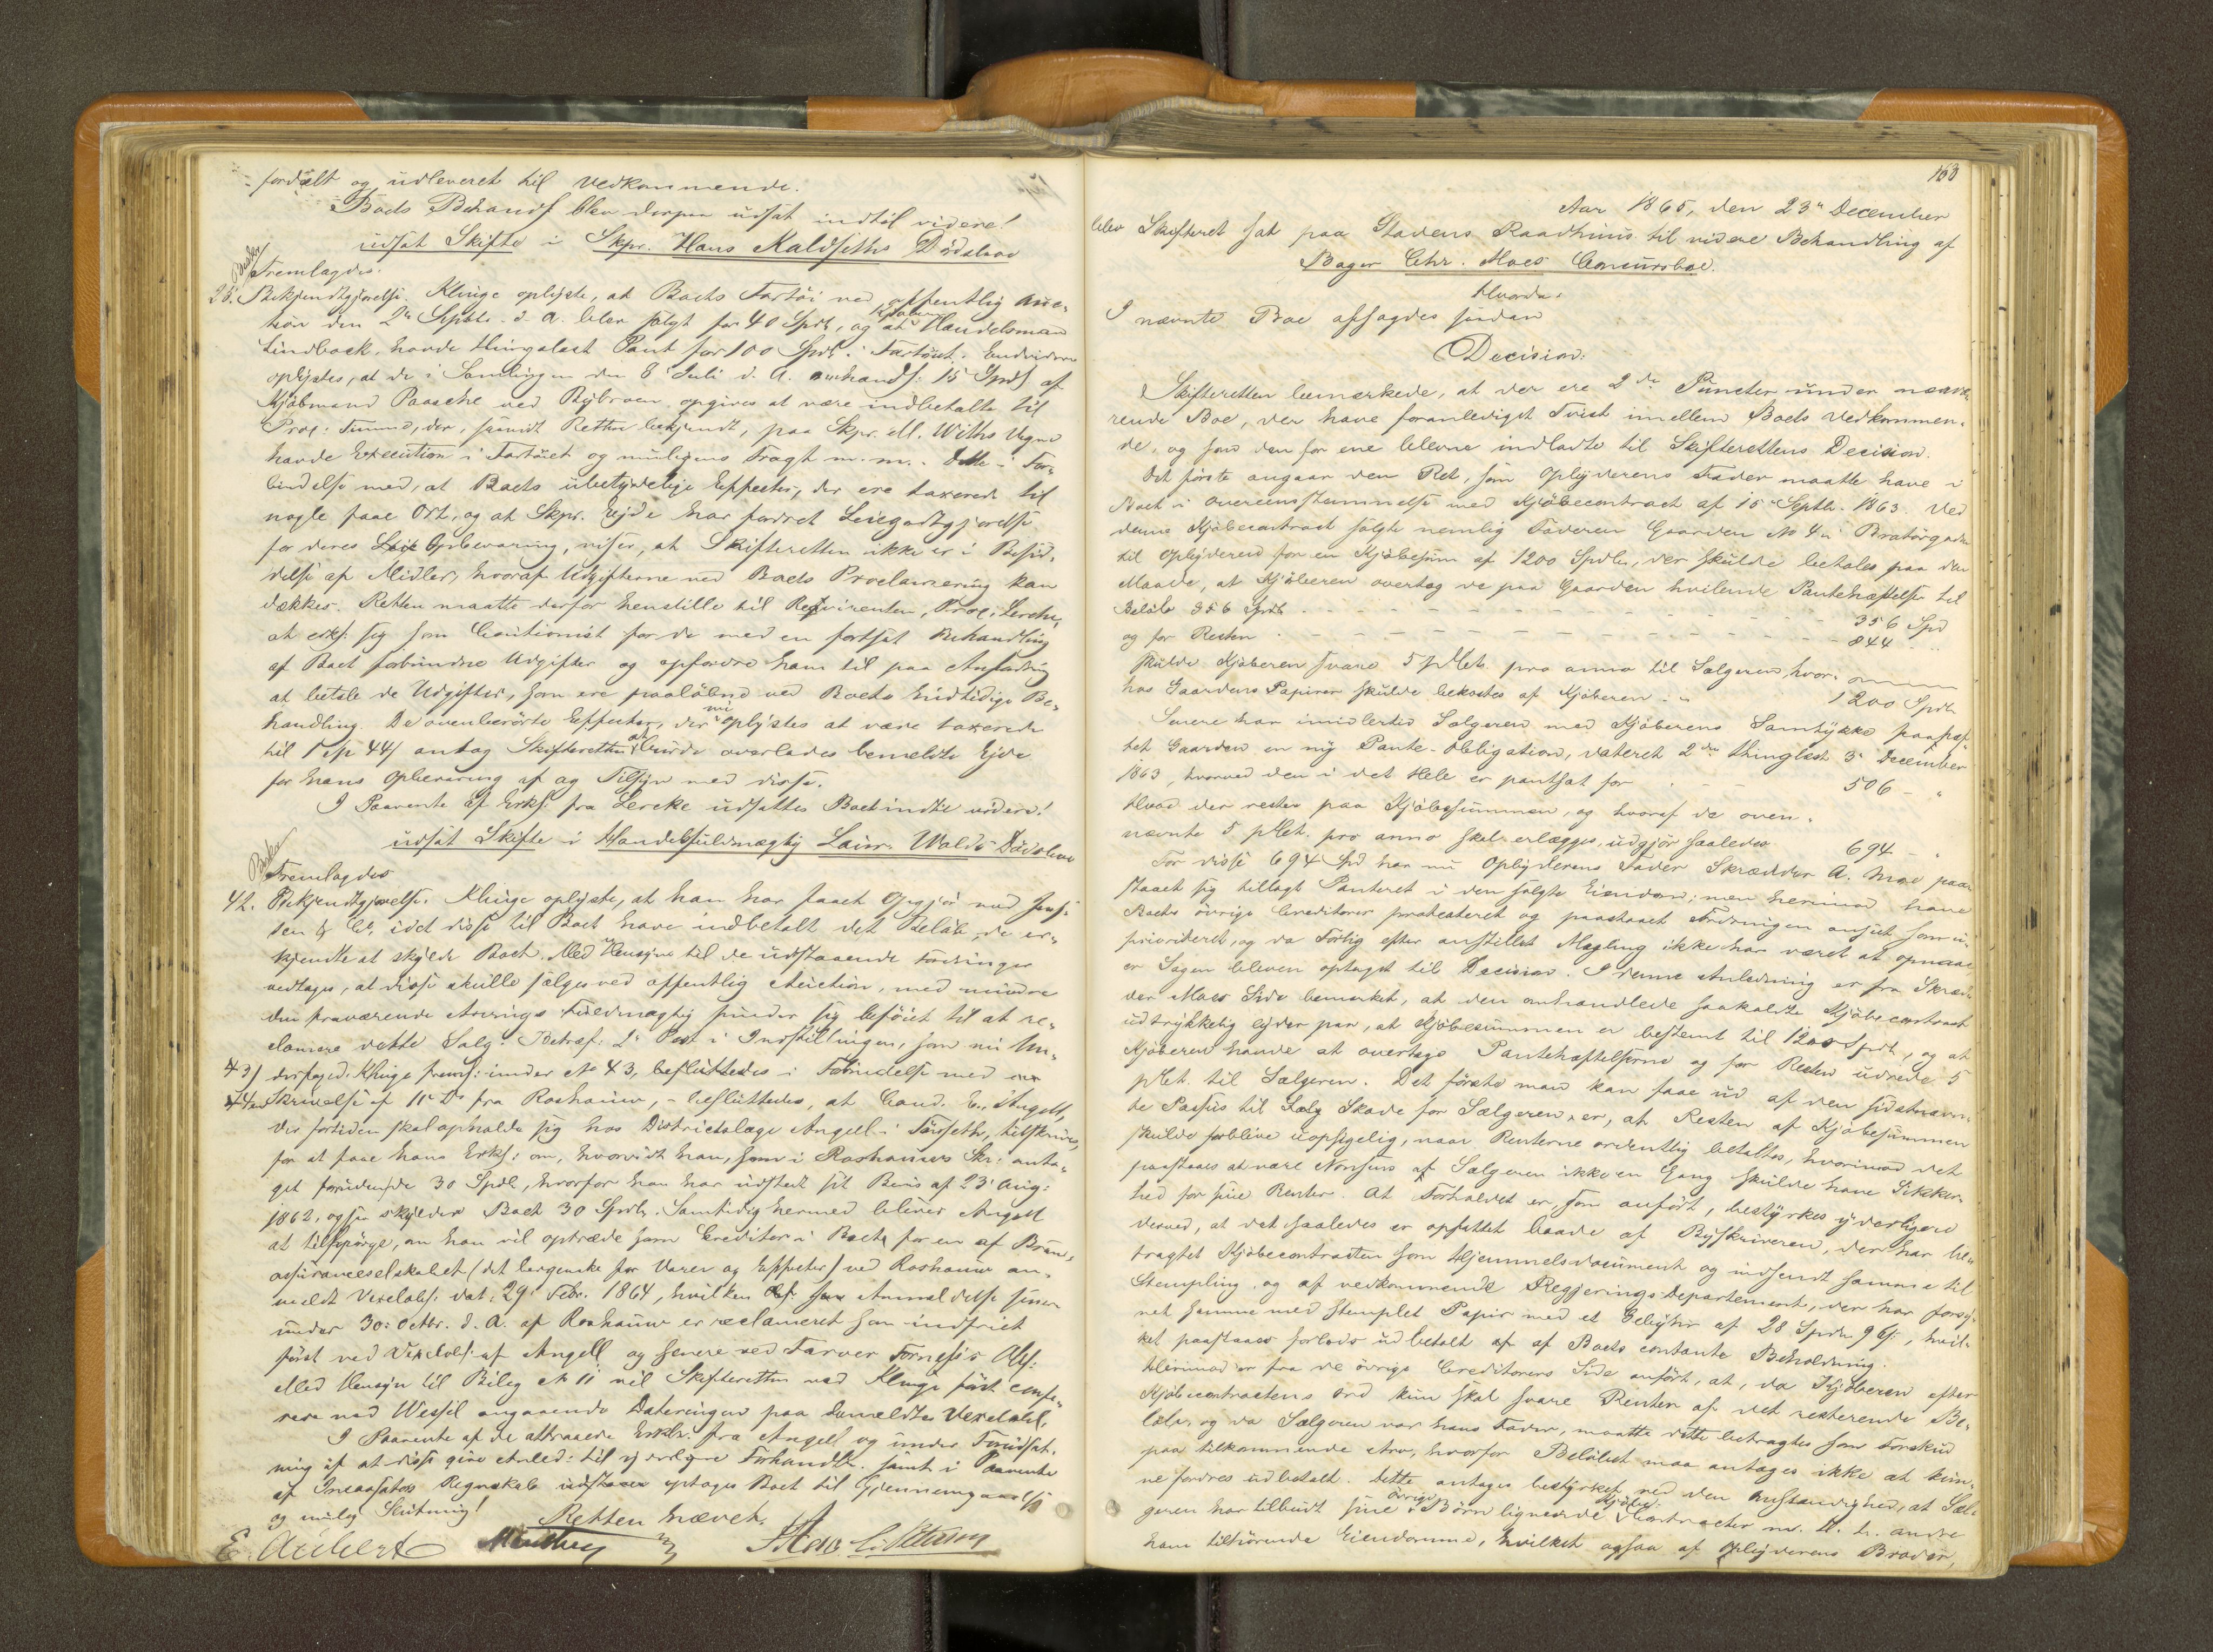 fordelt og udleveret til Vedkommende.
Boets Behandl blev derpaa udsat indtil videre!
udsat Skifte i Skpr. Hans Kaldseths Dødsboe
Fremlagdes.
25. Bekjendtgjørelse. Klinge oplyste, at Boets Fartøi ved offentlig Auc-
tion den 2n Septbr. d. A. blev solgt for 40 Spdl, og at Kjøberen Handelsmand
Lindbaek, havde thinglæst Pant for 100 Spdl i Fartøiet. Endvidere
oplystes, at de i Samlingen den 8 Juli d. A. omhandl: 15 Spdl af
Kjøbmand Paasche ved Bybroen opgives at være indbetalte til
Proc: Tumme, der, savidt Retten bekjendt, paa Skpr. M. Withs Vegne
havde Execution i Fartøiet og muligens Fragt m. m. Dette i For-
bindelse med, at Boets ubetydelige Effecter, der ere taxerede til
nogle faae Ort, og at Skpr. Ejde har fordret Leiegodtgjørelse
for deres Opbevaring, viser, at Skifteretten ikke er i Besid-
delse af Midler, hvoraf Udgifterne ved Boets Proclamering kan
dækkes. Retten maatte derfor henstille til Reqvirenten, Proc: Lerche,
at erkl: sig som Cautionist for de med en fortsat Behandling
af Boet forbundne Udgifter og opfordre ham til paa Anfordring
at betale de Udgifter, som ere paaløbne ved Boets hidtidige Be-
handling. De ovenberørte Effecter, der nu oplystes at være taxerede
til 44 antog Skifteretten at burde overlades bemeldte Ejde
for hans Opbevaring af og Tilsyn med disse.
I Paavente af Erkl: fra Lerche udsattes Boet indtil videre!
udsat Skifte i Handelsfuldmægtig Laur. Walds Dødsboe
Fremlagdes
42. Bekjendtgjørelse. Klinge oplyste, at han har faaet Opgjør med Jen-
sen & Co, idet disse til Boet have indbetalt det Beløb, de er-
kjendte at skylde Boet. Med Hensyn til de udstaaende Fordringer
vedtoges, at disse skulle sælges ved offentlig Auction, med mindre
den fraværende Arvings Fuldmægtig finder sig beføiet til at re-
clamere dette Salg. Betræf: 2n Post i Indstillingen, som nu
43/ Klinge freml: under No 43, besluttedes i Forbindelse med en
44 Skrivelse af 11te Ds fra Roshauw, - besluttedes, at Cand. E. Angell,
der fortiden skal opholde sig hos Districtslæge Angell i Førseth, tilskrives
for at faae hans Erkl: om, hvorvidt han, som i Roshauws Skr: anta-
get 30 Spdl, hvorfor han har udstedt sit Bevis af 23 Aug:
1862, ogsaa skylder Boet 30 Spdl. Samtidig hermed bliver Angell
at tilspørge, om han vil optræde som Creditor i Boet for en af Bran-
assuranceselskabet (det bergenske for Varer og Effecter) ved Roshauw an-
meldt Vexelobl: dat: 29 Febr. 1864, hvilken Anmeldelse
under 30: Octbr. d. A. af Roshauw er reclameret som indfriet
først ved Vexelobl: af Angell og senere ved Farver Fornæss's Obl:
Med Hensyn til Bilag No 11 vil Skifteretten ved Klinge først confe-
rere med Wessel angaaende Dateringen paa bemeldte Vexelobl.
I Paavente af de attraaede Erklr. fra Angell og under Forudsæt-
ning af at disse give Anled: til yderligere Forhandlr. samt i Paavente
af Incassators Regnskab optages Boet til Gjennemgaaelse
og mulig Slutning!
Retten hævet.
E. Aubert
163
Aar 1865, den 23n December
blev Skifteret sat paa Stadens Raadhuus til videre Behandling af
Bager Chr. Moes Concursboe.
Hvorda:
I nævnte Boe afsagdes saadan
Decision:
Skifteretten bemærkede, at der ere 2de Puncter under nærvæ-
rende Boe, der have foranlediget Tvist imellem Boets Vedkommen-
de, og som den for ene blevne indladte til Skifterettens Decision.
Det første angaar den Ret, som Oplyderens Fader maatte have i
Boet i Overeensstemmelse med Kjøbecontract af 15 Septbr. 1863. Ved
denne Kjøbecontract solgte nemlig Faderen Gaarden No 4 i Bratørgaden
til Oplyderen for en Kjøbesum af 1200 Spdlr, der skulde betales paa den
Maade, at Kjøberen overtog de paa Gaarden hvilende Pantehæftelser til
Beløb 356 Spdl - - - 356 Spd
og for Resten - - - 844 "
skulde Kjøberen svare 5 pCt. pro anno til Sælgeren, hvor-
hos Gaardens Papirer skulde bekostes af Kjøberen. 1200 Spdl.
Senere har imidlertid Sælgeren med Kjøberens Samtykke paahæf-
tet Gaarden en ny Pante-Obligation, dateret 2den thinglæst 3 December
1863, hvorved den i det Hele er pantsat for - - 506 - "
Hvad der rester paa Kjøbesummen, og hvoraf de oven-
nævnte 5 pCt. pro anno skal erlægges, udgjør saaledes 694 - "
For disse 694 Spd har nu Oplyderens Fader Skrædder A. Moe paa-
staaet sig tillagt Panteret i den solgte Eiendom; men herimod have
Boets øvrige Creditorer protesteret og paastaaet Fordringen anseet som u-
prioriteret, og da Forlig efter anstillet Mægling ikke har været at opnaae
er Sagen bleven optaget til Decision. I denne Anledning er fra Skræd-
der Moes Side bemærket, at den omhandlede saakaldte Kjøbecontract
udtrykkelig lyder paa, at Kjøbesummen er bestemt til 1200 Spdl, og at
Kjøberen havde at overtage Pantehæftelserne og for Resten udrede 5
pCt. til Sælgeren. Det første man kan faae ud af den sidstnævn-
te Passus til Skade for Sælgeren, er, at Resten af Kjøbesummen
skulde forblive uopsigelig, naar Renterne ordentlig betaltes, hvorimod det
paastaaes at være Nonsens at Sælgeren ikke en Gang skulde have Sikker-
hed for sine Renter. At Forholdet er, som anført, bestyrkes yderligere
derved, at det saaledes er opfattet baade af Byskriveren, der har be-
tragtet Kjøbecontracten som Hjemmelsdocument og indsendt samme til
Stempling, og af vedkommende Regjerings Departement, der har forsy-
net samme med stemplet Papir med et Gebyhr af 28 Spdl 96 s, hvil-
ket paastaaes forlods udbetalt af Boets contante Beholdning.
Herimod er fra de øvrige Creditorers Side anført, at, da Kjøberen efter
Kjøbecontractens Ord kun skal svare Renten af det resterende Be-
løb, og da Sælgeren var hans Fader, maatte dette betragtes som Forskud
paa tilkommende Arv, hvorfor Beløbet maa antages ikke at kun-
ne fordres udbetalt. Dette antages bestyrket ved den Omstændighed, at Sæl-
geren har tilbudt sine øvrige Børn lignende Kjøbe-Contracter m. H. t. andre
ham tilhørende Eiendomme, hvilket ogsaa af Oplyderens Broder,